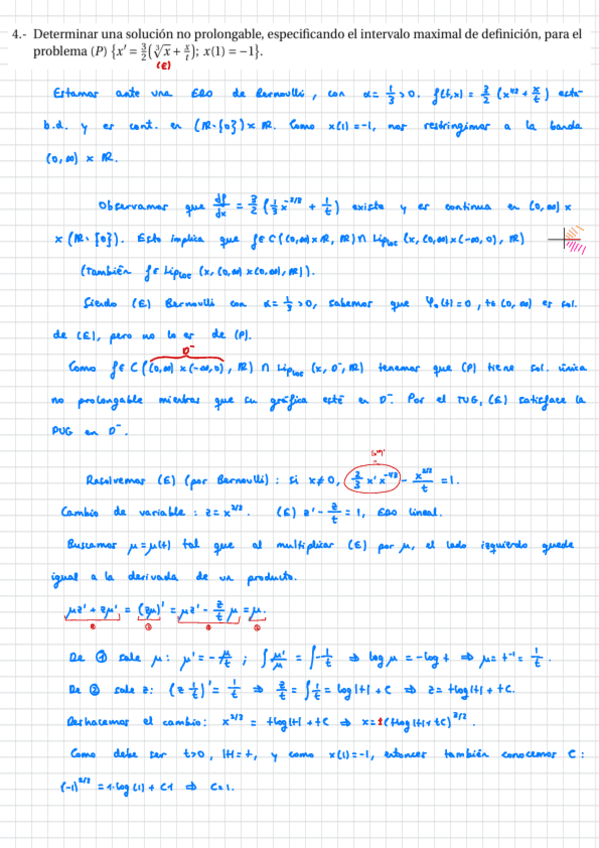 4.- Determinar una solución no prolongable, especificando el intervalo maximal de definición, para el
problema (P) {x' = 3/2(∛x + x/t); x(1) = −1}.
(E)
Estamos ante una EDO de Bernoulli, con α = 1/3 > 0. f(t,x) = 3/2 (x^{1/3} + x/t) está
b.d. y es cont. en (ℝ-{0}) × ℝ. Como x(1) = -1, nos restringimos a la banda
(0,∞) × ℝ.
Observamos que df/dx = 3/2 (1/3 x^{-2/3} + 1/t) existe y es continua en (0,∞) ×
× (ℝ-{0}). Esto implica que f ∈ C((0,∞) × ℝ, ℝ) ∩ Lip_loc (x, (0,∞) × (-∞,0), ℝ)
(También f ∈ Lip_loc (x, (0,∞) × (0,∞), ℝ)).
Siendo (E) Bernoulli con α = 1/3 > 0, sabemos que φ₀(t) = 0, t ∈ (0,∞) es sol.
de (E), pero no lo es de (P).
D⁻
Como f ∈ C((0,∞) × (-∞,0), ℝ) ∩ Lip_loc (x, D⁻, ℝ) tenemos que (P) tiene sol. única
no prolongable mientras que su gráfica esté en D⁻. Por el TUG, (E) satisface la
PUG en D⁻.
Resolvemos (E) (por Bernoulli): si x≠0, 2/3 x' x^{-1/3} - x^{2/3}/t = 1.
Cambio de variable: z = x^{2/3}. (E) z' - z/t = 1, EDO lineal.
Buscamos μ = μ(t) tal que al multiplicar (E) por μ, el lado izquierdo quede
igual a la derivada de un producto.
μz' + zμ' = (zμ)' = μz' - z/t μ = μ.
De ① sale μ: μ' = -μ/t ; ∫ μ'/μ = ∫ -1/t ⇒ log μ = -log t ⇒ μ = t⁻¹ = 1/t.
De ② sale z: (z 1/t)' = 1/t ⇒ z/t = ∫ 1/t = log|t| + C ⇒ z = t log|t| + tC.
Deshacemos el cambio: x^{2/3} = t log|t| + tC ⇒ x = ±(t log|t| + tC)^{3/2}.
Como debe ser t>0, |t| = t, y como x(1) = -1, entonces también conocemos C:
(-1)^{2/3} = 1·log(1) + C·1 ⇒ C = 1.